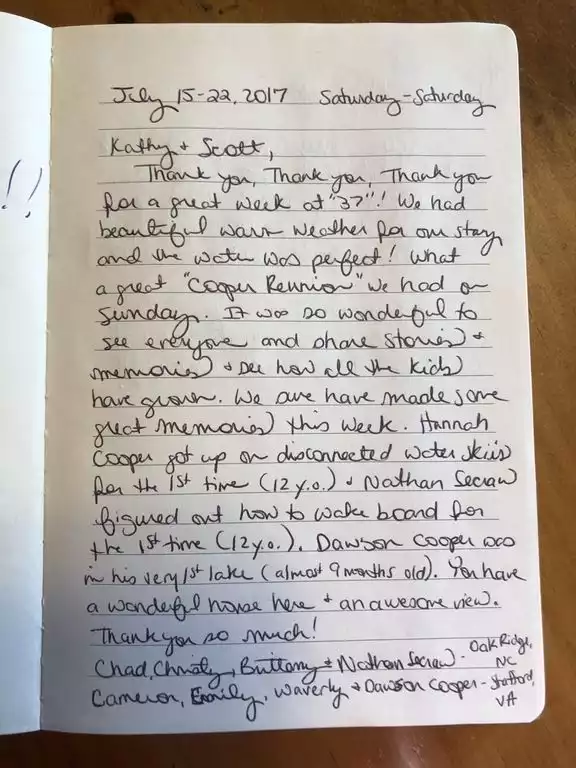 !!
July 15-22, 2017 Saturday-Saturday
Kathy + Scott,
Thank you, Thank you, Thank you
for a great week at "37"! We had
beautiful warm weather for our stay
and the water was perfect! What
a great "Cooper Reunion" we had on
Sunday. It was so wonderful to
see everyone and share stories +
memories + see how all the kids
have grown. We are have made some
great memories this week. Hannah
Cooper got up on disconnected water skiis
for the 1st time (12 y.o.) + Nathan Secraw
figured out how to wake board for
the 1st time (12 y.o.). Dawson Cooper was
in his very 1st lake (almost 9 months old). You have
a wonderful home here + an awesome view.
Thank you so much!
Chad, Christy, Brittany + Nathan Secraw - Oak Ridge, NC
Cameron, Emily, Waverly + Dawson Cooper - Stafford, VA